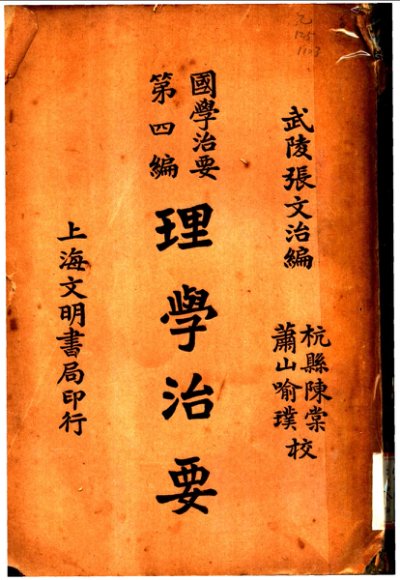 武陵張文治編
杭縣陳棠
蕭山喻璞校
國學治要
第四編
理學治要
上海文明書局印行